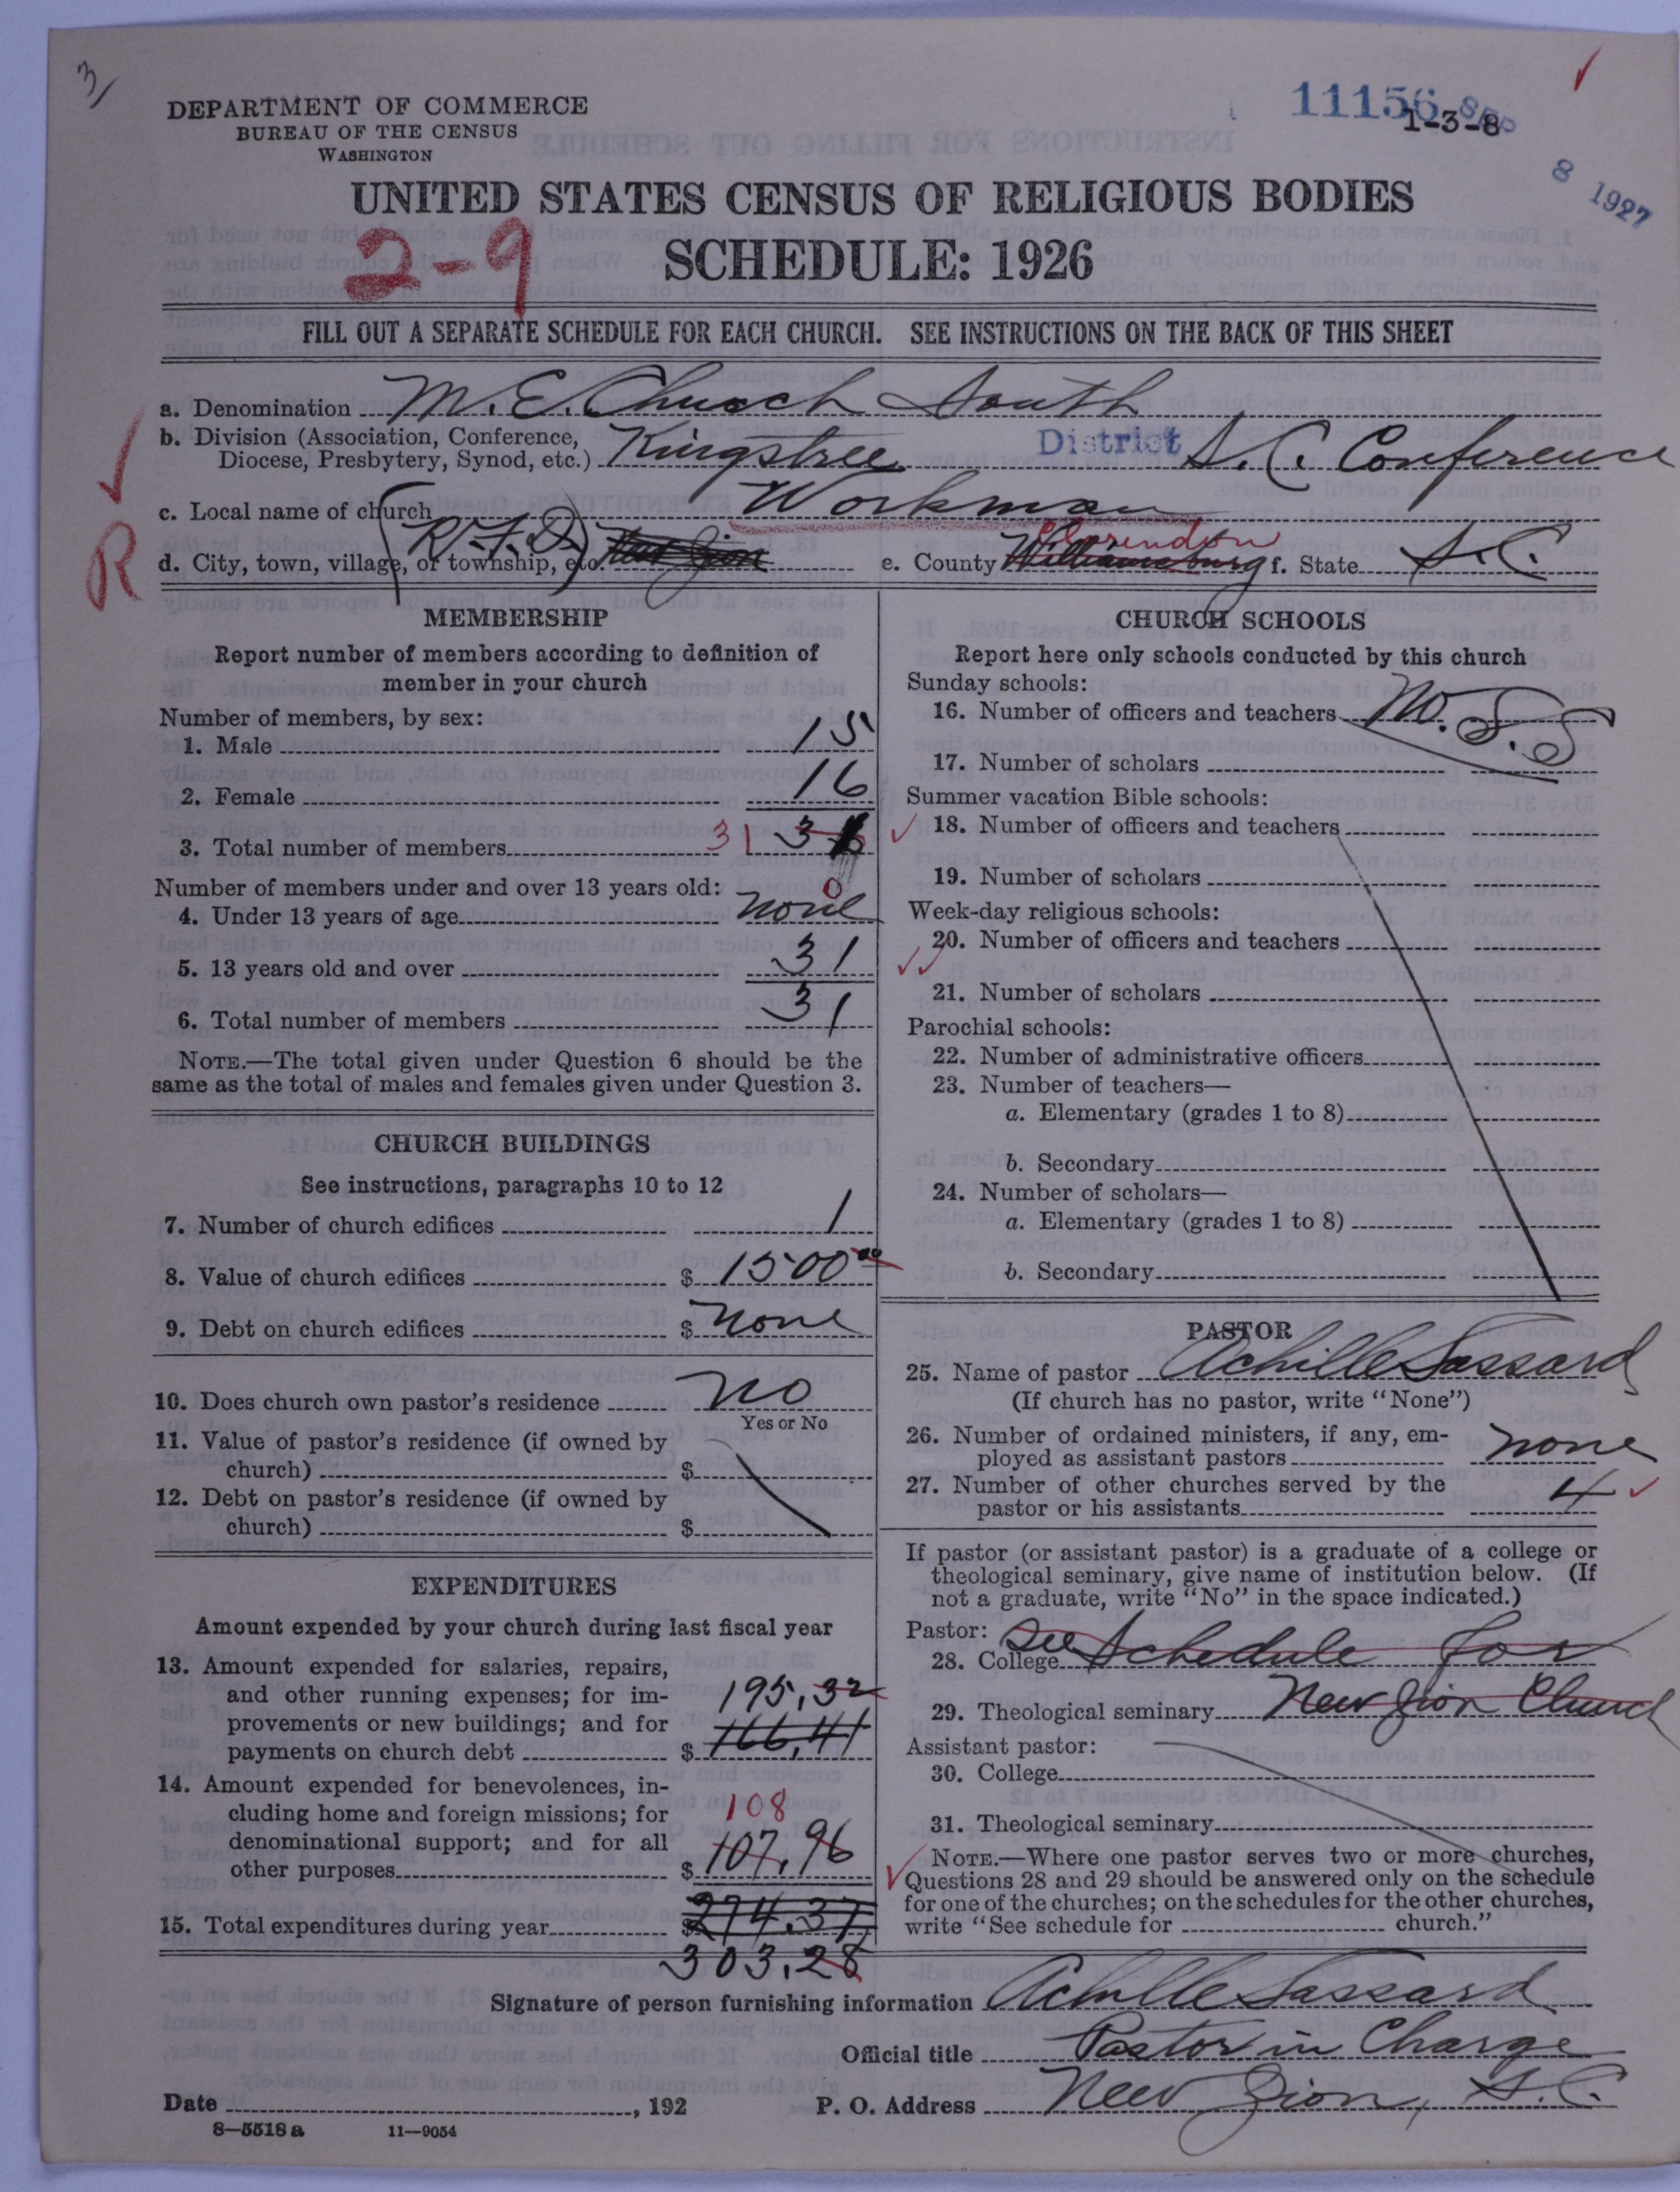 3
DEPARTMENT OF COMMERCE
BUREAU OF THE CENSUS
WASHINGTON
11156 SEP 8 1927
1-3-8
UNITED STATES CENSUS OF RELIGIOUS BODIES
2-9
SCHEDULE: 1926
FILL OUT A SEPARATE SCHEDULE FOR EACH CHURCH. SEE INSTRUCTIONS ON THE BACK OF THIS SHEET
a. Denomination M. E. Church South
b. Division (Association, Conference,
Diocese, Presbytery, Synod, etc.) Kingstree District S. C. Conference
c. Local name of church Workman
R
d. City, town, village, or township, etc. (R.F.D.) New Zion e. County Williamsburg Clarendon f. State S. C.
MEMBERSHIP
Report number of members according to definition of
member in your church
Number of members, by sex:
1. Male 15
2. Female 16
3. Total number of members 31
Number of members under and over 13 years old:
4. Under 13 years of age none 0
5. 13 years old and over 31
6. Total number of members 31
NOTE.—The total given under Question 6 should be the
same as the total of males and females given under Question 3.
CHURCH BUILDINGS
See instructions, paragraphs 10 to 12
7. Number of church edifices 1
8. Value of church edifices $ 1500 00
9. Debt on church edifices $ none
10. Does church own pastor's residence No
Yes or No
11. Value of pastor's residence (if owned by
church) $
12. Debt on pastor's residence (if owned by
church) $
EXPENDITURES
Amount expended by your church during last fiscal year
13. Amount expended for salaries, repairs,
and other running expenses; for im-
provements or new buildings; and for
payments on church debt $ 195.32
166.41
14. Amount expended for benevolences, in-
cluding home and foreign missions; for
denominational support; and for all
other purposes $ 107.96
108
15. Total expenditures during year $ 274.37
303.28
CHURCH SCHOOLS
Report here only schools conducted by this church
Sunday schools:
16. Number of officers and teachers No. S. S
17. Number of scholars
Summer vacation Bible schools:
18. Number of officers and teachers
19. Number of scholars
Week-day religious schools:
20. Number of officers and teachers
21. Number of scholars
Parochial schools:
22. Number of administrative officers
23. Number of teachers—
a. Elementary (grades 1 to 8)
b. Secondary
24. Number of scholars—
a. Elementary (grades 1 to 8)
b. Secondary
PASTOR
25. Name of pastor Achille Sassard
(If church has no pastor, write "None")
26. Number of ordained ministers, if any, em-
ployed as assistant pastors none
27. Number of other churches served by the
pastor or his assistants 4
If pastor (or assistant pastor) is a graduate of a college or
theological seminary, give name of institution below. (If
not a graduate, write "No" in the space indicated.)
Pastor:
28. College See Schedule for
29. Theological seminary New Zion Church
Assistant pastor:
30. College
31. Theological seminary
NOTE.—Where one pastor serves two or more churches,
Questions 28 and 29 should be answered only on the schedule
for one of the churches; on the schedules for the other churches,
write "See schedule for church."
Signature of person furnishing information Achille Sassard
Official title Pastor in Charge
Date , 192 P. O. Address New Zion, S. C.
8—5518a 11—9054